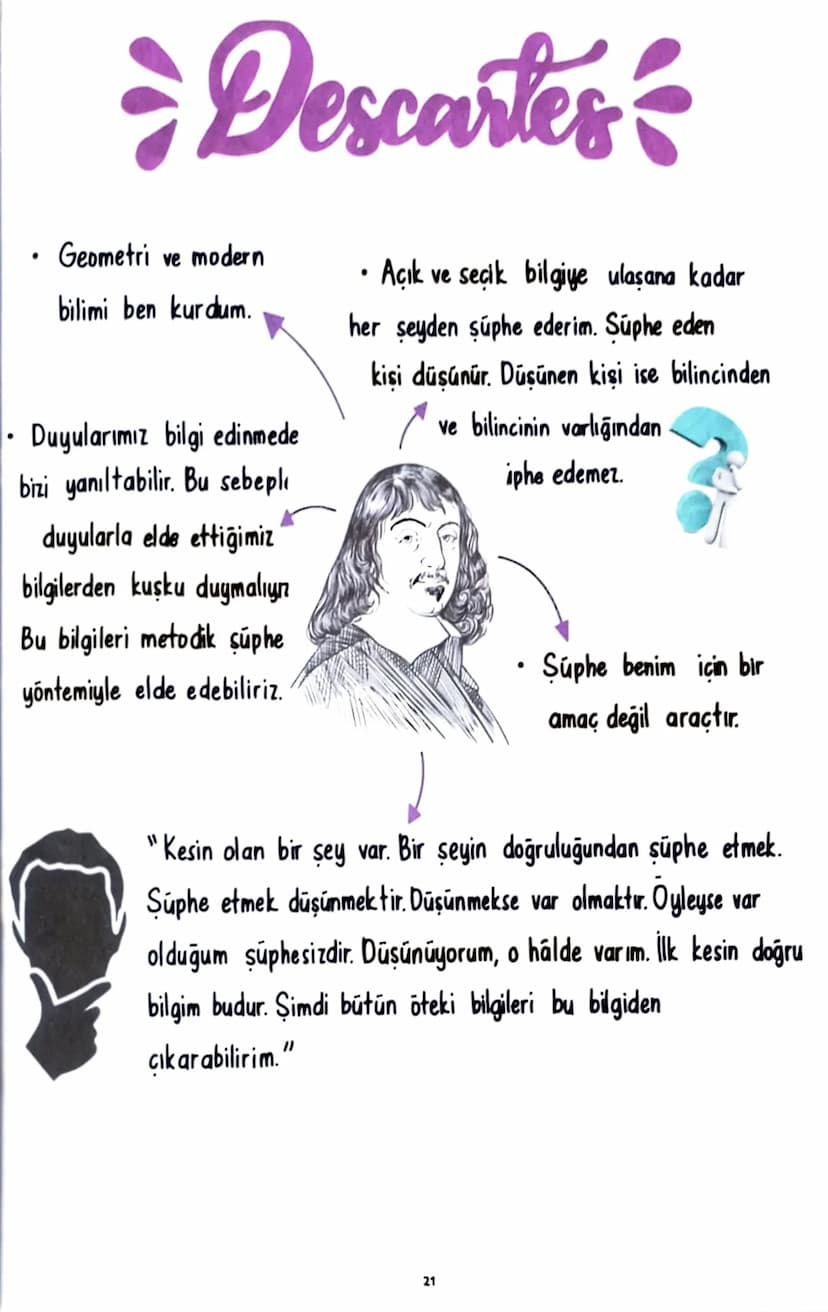 Descartes
• Geometri ve modern
bilimi ben kurdum.
• Açık ve seçik bilgiye ulaşana kadar
her şeyden şüphe ederim. Şüphe eden
kişi düşünür. Düşünen kişi ise bilincinden
ve bilincinin varlığından
edemez.
• Duyularımız bilgi edinmede
bizi yanıltabilir. Bu
duyularla elde ettiğimiz
bilgilerden kuşku
Bu bilgileri metodik şüphe
yöntemiyle elde edebiliriz.
• Şüphe benim için bir
amaç değil araçtır.
"Kesin olan bir şey var. Bir şeyin doğruluğundan şüphe etmek.
Şüphe etmek düşünmektir. Düşünmekse var olmaktır. Öyleyse var
olduğum şüphesizdir. Düşünüyorum, o hâlde varım. İlk kesin doğru
bilgim budur. Şimdi bütün öteki bilgileri bu bilgiden
çıkarabilirim."
21